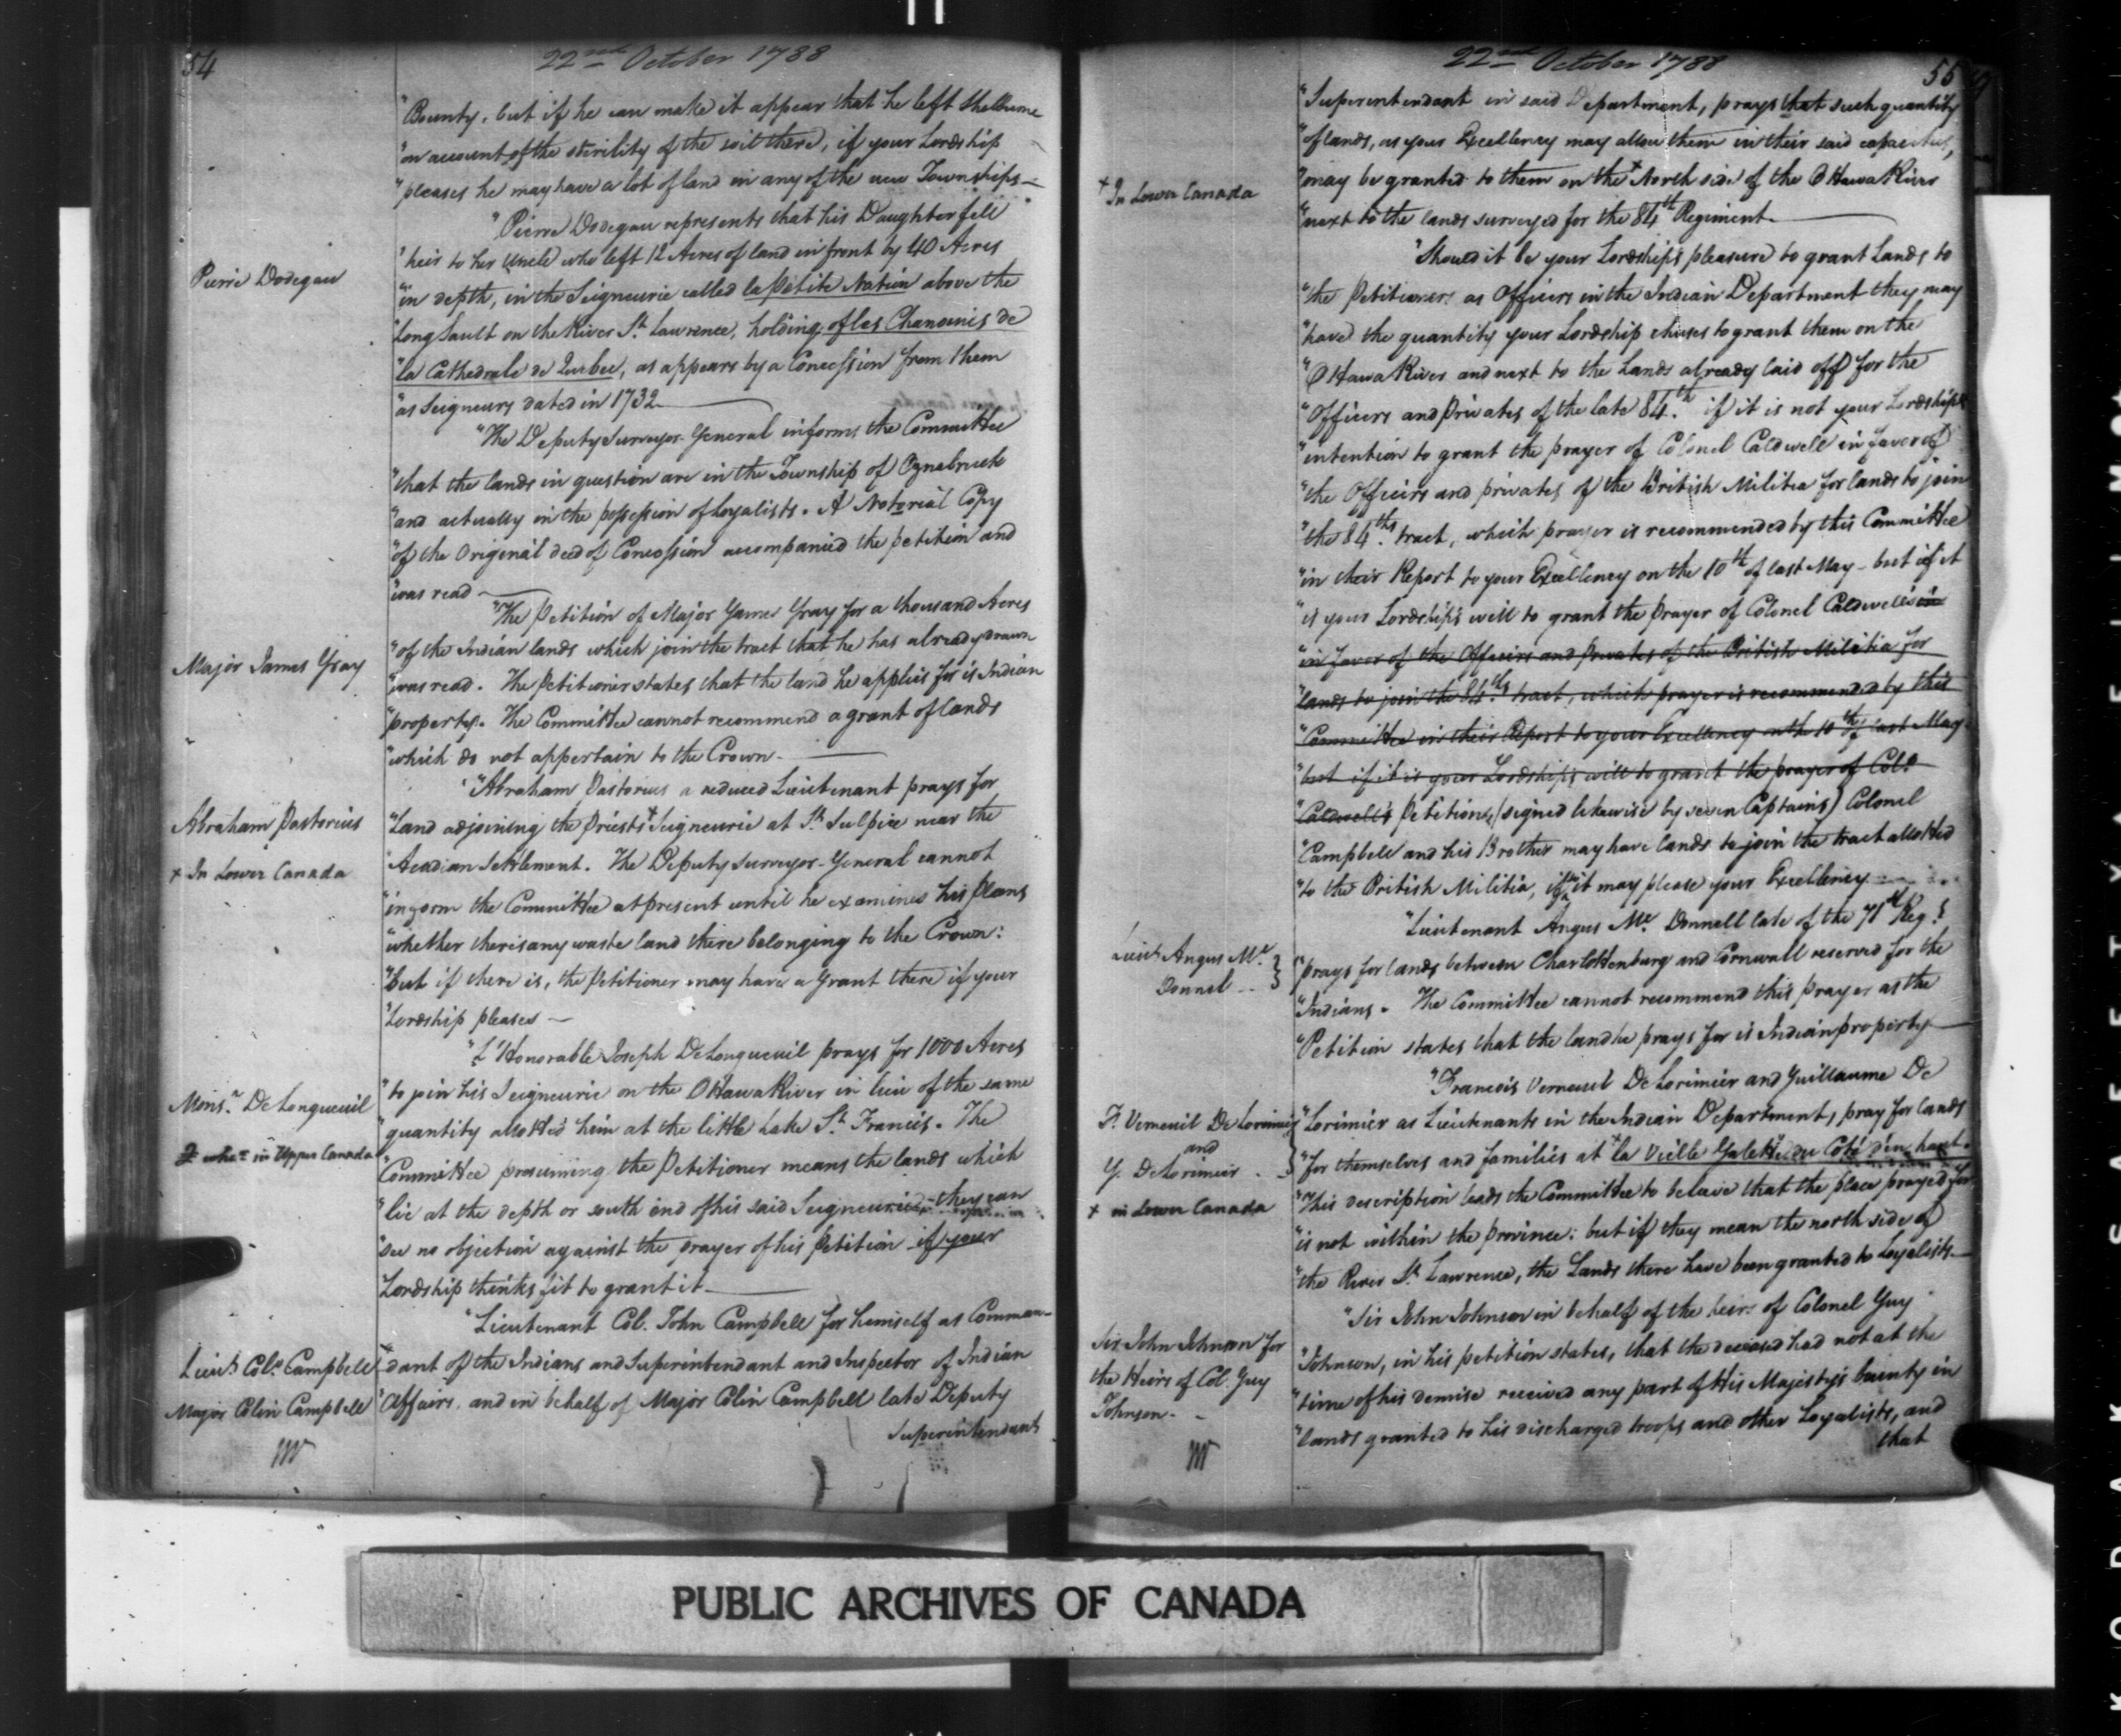 54
22nd October 1788
"Bounty, but if he can make it appear that he left Shelburne
"on account of the sterility of the soil there, if your Lordship
"pleases he may have a lot of land in any of the new Townships —
"Pierre Dodegau represents that his Daughter fell
Pierre Dodegau
"heir to her Uncle who left 12 Acres of land in front by 40 Acres
"in depth, in the Seigneurie called la Petite Nation above the
"Long Sault on the River St. Lawrence, holding of les Chanoinis de
"la Cathedrale de Quebec, as appears by a Concession from them
"as Seigneurs dated in 1732
"The Deputy Surveyor-General informs the Committee
"that the lands in question are in the Township of Oznabruck
"and actually in the possession of Loyalists. A Notorial Copy
"of the Original deed of Concession accompanied the petition and
"was read —
"The Petition of Major James Gray for a thousand Acres
Major James Gray
"of the Indian lands which join the tract that he has already drawn
"was read. The Petitioner states that the land he applies for is Indian
"property. The Committee cannot recommend a grant of lands
"which do not appertain to the Crown.
"Abraham Pastorius a reduced Lieutenant prays for
Abraham Pastorius
x In Lower Canada
"Land adjoining the Priests x Seigneurie at St. Sulpice near the
"Acadian Settlement. The Deputy Surveyor-General cannot
"inform the Committee at present until he examines his plans
"whether there is any waste land there belonging to the Crown:
"but if there is, the Petitioner may have a Grant there if your
"Lordship pleases —
"L'Honorable Joseph DeLongueuil prays for 1000 Acres
Monsr. DeLongueuil
in Upper Canada
"to join his Seigneurie on the Ottawa River in lieu of the same
"quantity allotted him at the little Lake St. Francis. The
"Committee presuming the Petitioner means the lands which
"lie at the depth or south end of his said Seigneurie, they can
"see no objection against the prayer of his Petition if your
Lordship thinks fit to grant it.
"Lieutenant Col. John Campbell for himself as Comman-
Lieut. Col. Campbell
Major Colin Campbell
"dant of the Indians and Superintendant and Inspector of Indian
"Affairs, and in behalf of Major Colin Campbell late Deputy
Superintendant
22nd October 1788
55
"Superintendant in said Department, prays that such quantity
"of lands, as your Excellency may allow them in their said capacities,
x In Lower Canada
"may be granted to them on the x North side of the Ottawa River
"next to the lands surveyed for the 84th Regiment.
"Should it be your Lordship's pleasure to grant Lands to
"the Petitioners as Officers in the Indian Department they may
"have the quantity your Lordship chuses to grant them on the
"Ottawa River and next to the Lands already laid off for the
"Officers and Privates of the late 84th. if it is not your Lordship's
"intention to grant the prayer of Colonel Caldwell in favor of
"the Officers and privates of the British Militia for lands to join
"the 84ths. tract, which prayer is recommended by this Committee
"in their Report to your Excellency on the 10th of last May - but if it
"is your Lordship's will to grant the prayer of Colonel Caldwell's in
"in favor of the Officers and Privates of the British Militia for
"lands to join the 84ths. tract, which prayer is recommended by this
"Committee in their Report to your Excellency on the 10th of last May
"but if it is your Lordship's will to grant the prayer of Colo.
"Caldwell's Petition, (signed likewise by seven Captains) Colonel
"Campbell and his Brother may have lands to join the tract allotted
"to the British Militia, if it may please your Excellency
"Lieutenant Angus Mc. Donnell late of the 71st Regt.
Lieut. Angus Mc.
Donnel
"prays for lands between Charlottenburg and Cornwall reserved for the
"Indians. The Committee cannot recommend this prayer as the
"Petition states that the land he prays for is Indian property
"Francois Verneuil DeLorimier and Guillaume De
F. Verneuil De Lorimier
and
G. DeLorimier
x in Lower Canada
"Lorimier as Lieutenants in the Indian Department, pray for lands
"for themselves and families at x la Vieille Galette du Coté d'en haut.
"This description leads the Committee to beleive that the place prayed for
"is not within the province: but if they mean the north side of
"the River St. Lawrence, the Lands there have been granted to Loyalists.
"Sir John Johnson in behalf of the heirs of Colonel Guy
Sir John Johnson for
the Heirs of Col. Guy
Johnson.
"Johnson, in his petition states, that the deceased had not at the
"time of his demise received any part of His Majesty's bounty in
"lands granted to his discharged troops and other Loyalists, and
that
PUBLIC ARCHIVES OF CANADA